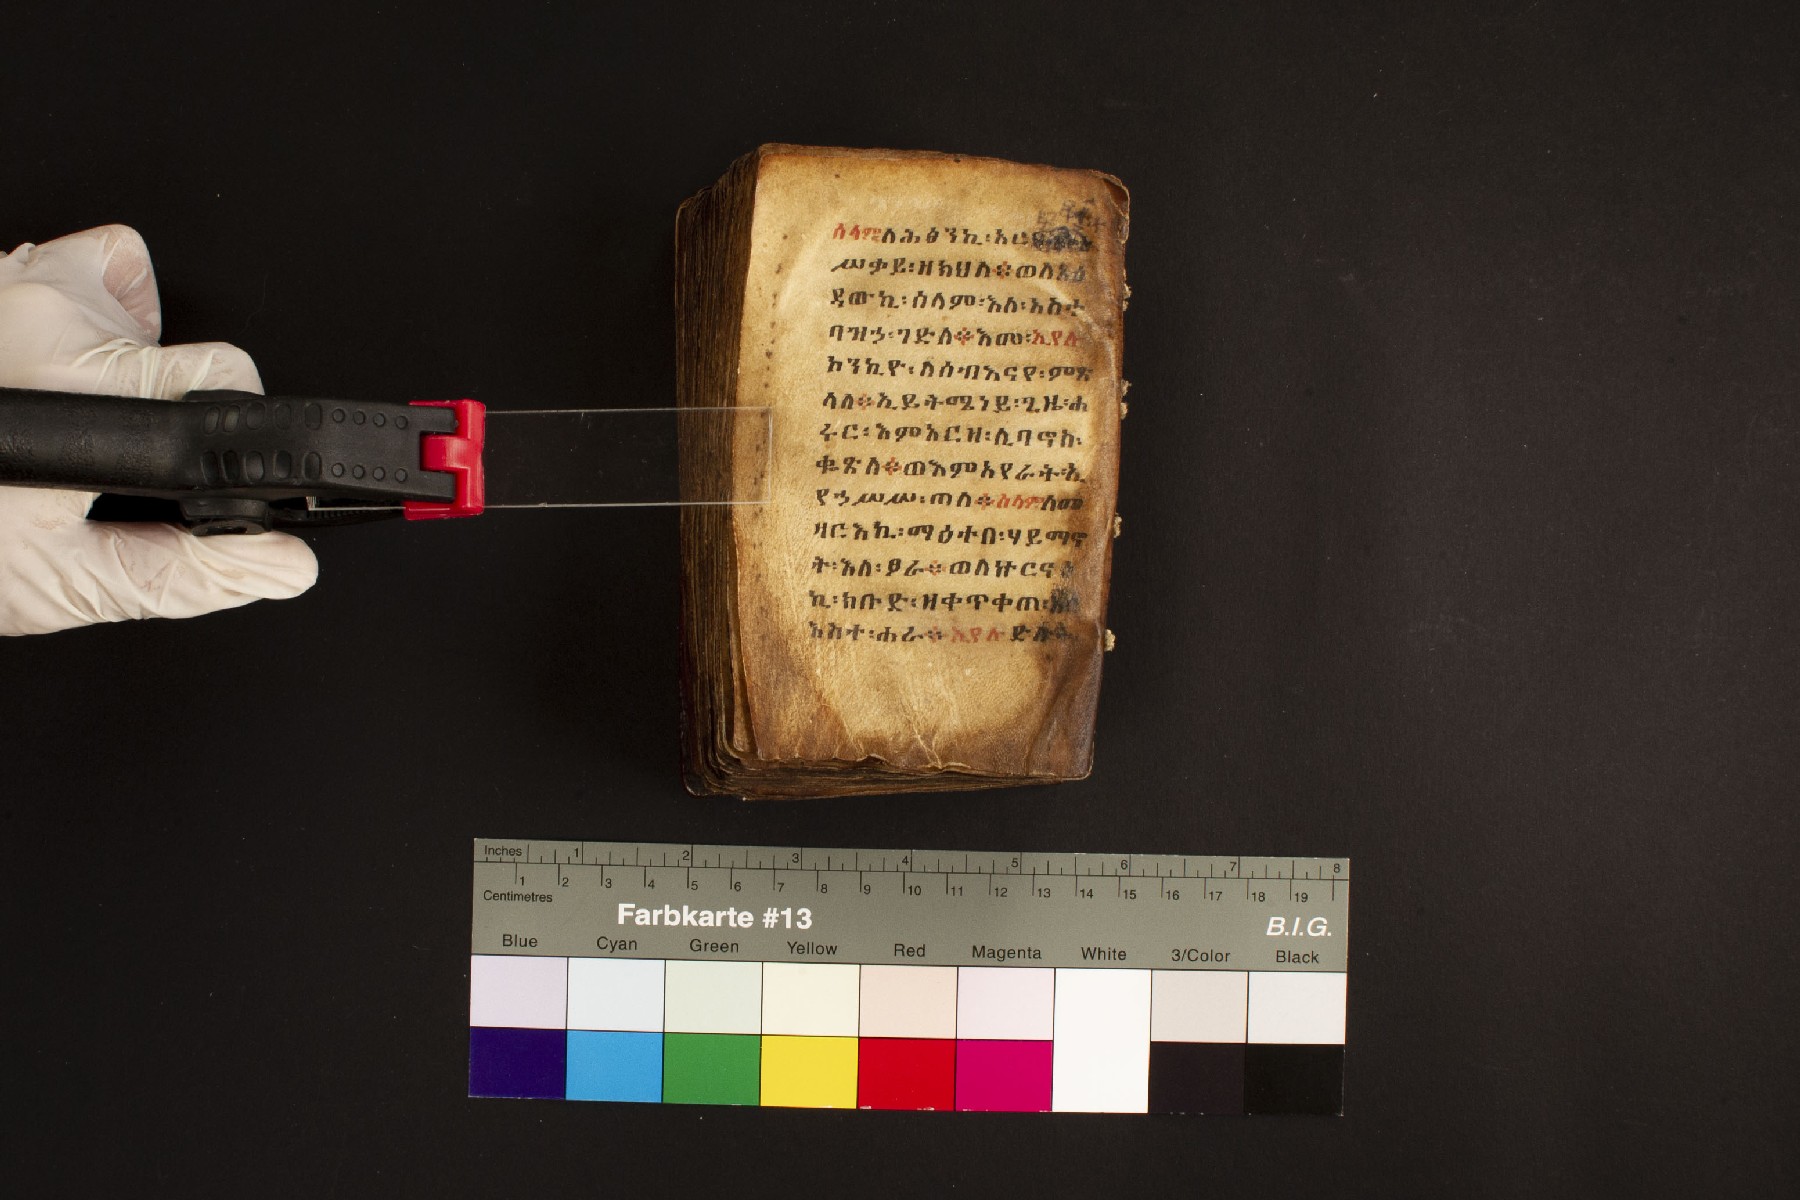 ሰላም ለሕፅንኪ፡
ሥቃይ፡ ዘክህለ። ወለአፅ
ዳውኪ፡ ሰላም፡ እለ፡ አስተ
ባዝኃ፡ ገድለ። እመ፡ ኢየሉ
ኮንኪዮ፡ ለሰብእናየ፡ ምጽ
ላለ። ኢይትሜነይ፡ ጊዜ፡ ሐ
ሩር፡ እምአርዝ፡ ሊባኖስ፡
ቈጽለ። ወእምአየራት፡
የኃሥሥ፡ ጠለ። ሰላም ለመ
ዛርእኪ፡ ማዕተበ፡ ሃይማኖ
ት፡ እለ፡ ፆራ። ወለኵርናዕ
ኪ፡ ክቡድ፡ ዝቀጥቀጠ፡
እስተ፡ ሐራ። ኢየሉ
Inches 1 2 3 4 5 6 7 8
1 2 3 4 5 6 7 8 9 10 11 12 13 14 15 16 17 18 19
Centimetres
Farbkarte #13
B.I.G.
Blue Cyan Green Yellow Red Magenta White 3/Color Black